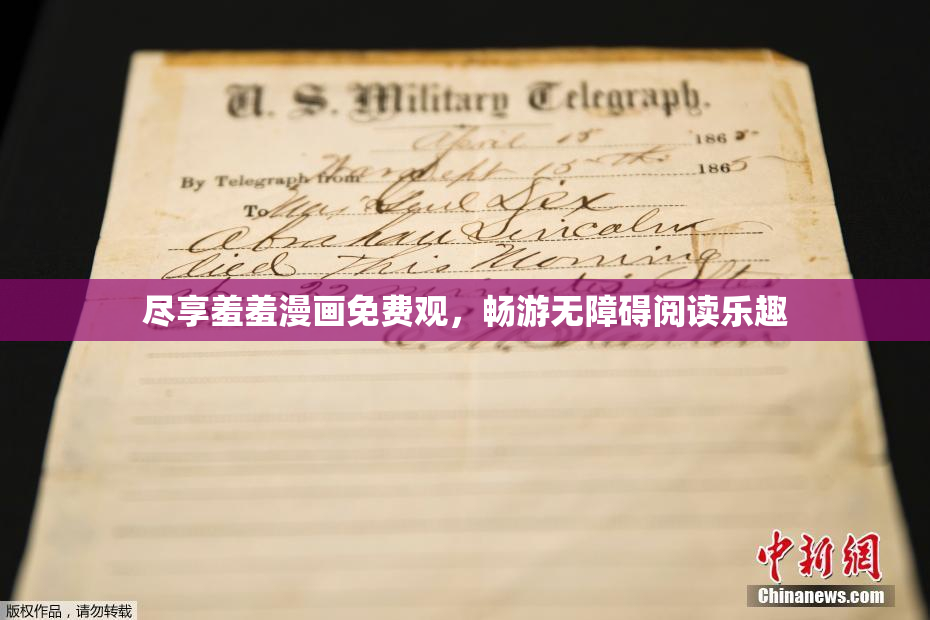 U. S. Military Telegraph.
April 15 1865
By Telegraph from War Dept 15th 1865
To Maj Genl Dix
Abraham Lincoln
died This Morning
at 22 minutes after
尽享羞羞漫画免费观，畅游无障碍阅读乐趣
E. M. Stanton
中新网
Chinanews.com
版权作品，请勿转载